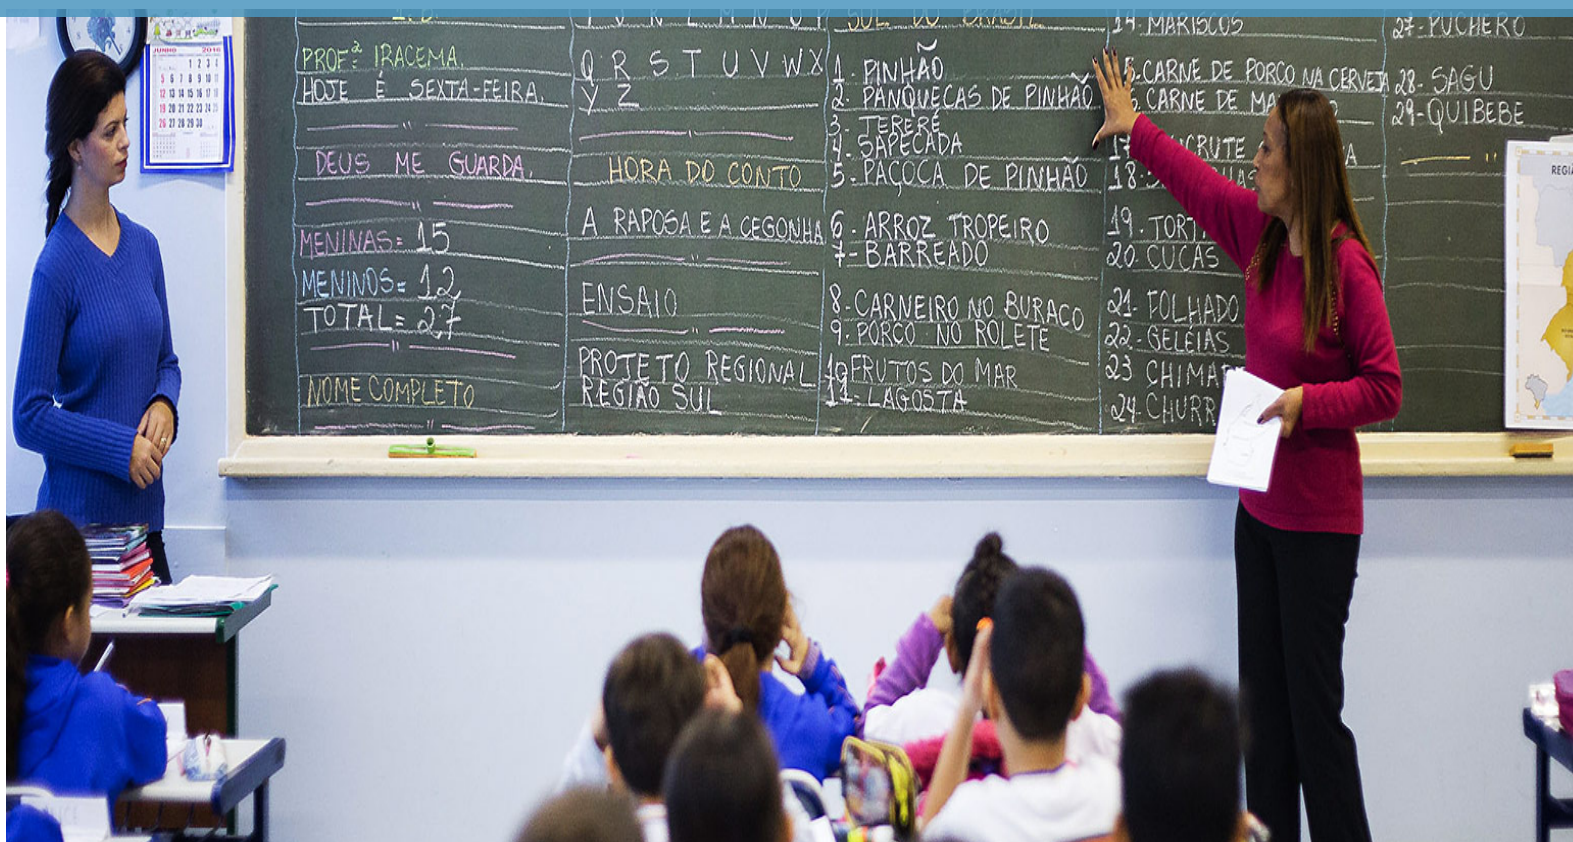 JUNHO 2016
1 2 3 4
5 6 7 8 9 10 11
12 13 14 15 16 17 18
19 20 21 22 23 24 25
26 27 28 29 30
PROFª IRACEMA
HOJE É SEXTA-FEIRA.
DEUS ME GUARDA.
MENINAS= 15
MENINOS= 12
TOTAL= 27
NOME COMPLETO
Q R S T U V W X
Y Z
HORA DO CONTO
A RAPOSA E A CEGONHA
ENSAIO
PROJETO REGIONAL
REGIÃO SUL
SUL DO BRASIL
1- PINHÃO
2- PANQUECAS DE PINHÃO
3- TERERÉ
4- SAPECADA
5- PAÇOCA DE PINHÃO
6- ARROZ TROPEIRO
7- BARREADO
8- CARNEIRO NO BURACO
9- PORCO NO ROLETE
10 FRUTOS DO MAR
11- LAGOSTA
14- MARISCOS
CARNE DE PORCO NA CERVEJA
CARNE DE
17
18-
19- TORT
20- CUCAS
21- FOLHADO
22- GELÉIAS
23 CHIMAR
24- CHURR
27- PUCHERO
28- SAGU
29- QUIBEBE
REGIÃ